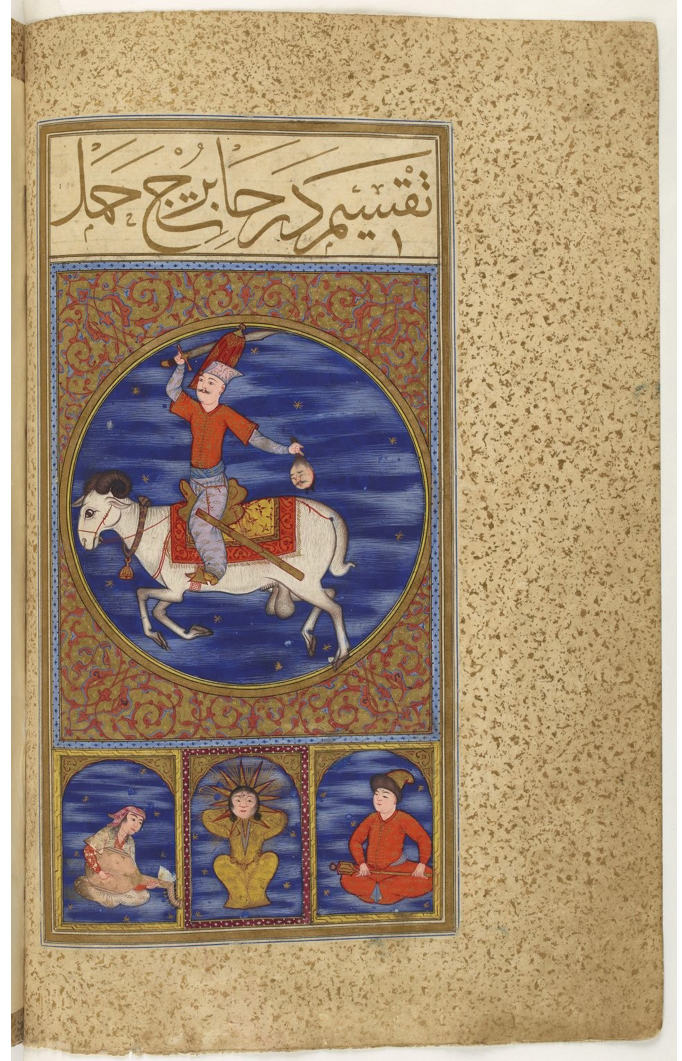 تقسيم درجات برج حمل